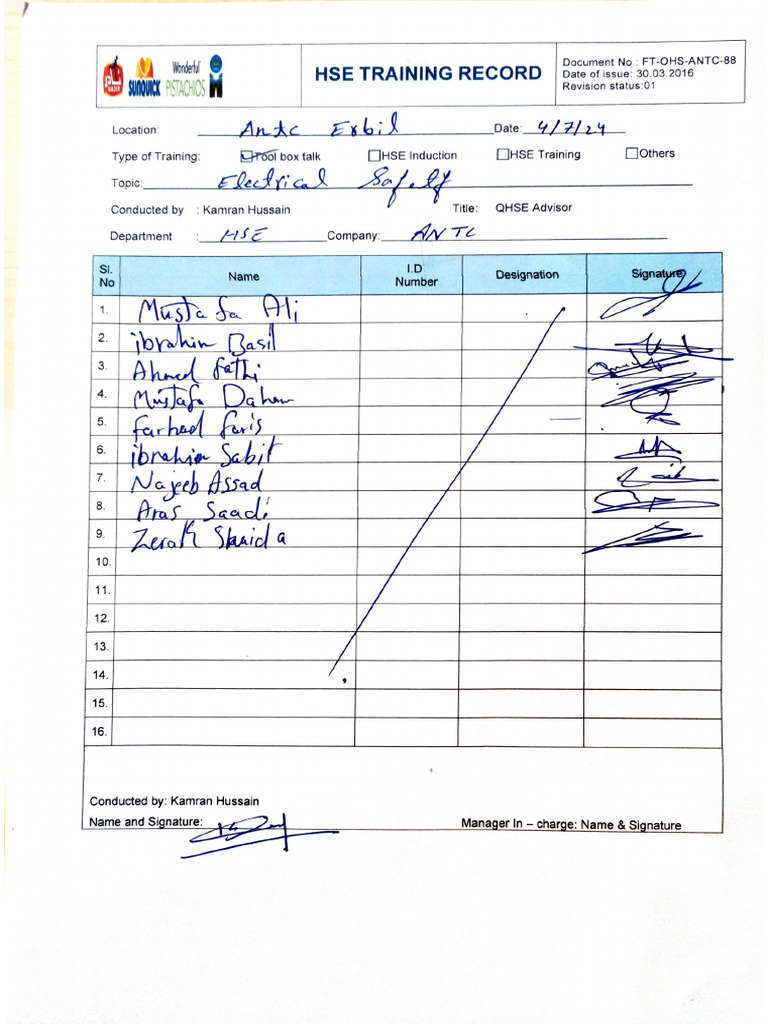 NADIR
SUNQUICK
Wonderful
PISTACHIOS
HSE TRAINING RECORD
Document No : FT-OHS-ANTC-88
Date of issue: 30.03.2016
Revision status:01
Location: Antc Erbil Date: 4/7/24
Type of Training: Tool box talk HSE Induction HSE Training Others
Topic: Electrical Safety
Conducted by : Kamran Hussain Title: QHSE Advisor
Department : HSE Company: ANTC
Sl. No Name I.D Number Designation Signature
1. Mustafa Ali
2. ibrahim Basil
3. Ahmed fathi
4. Mustafa Daham
5. farhad faris
6. ibrahim Sabit
7. Najeeb Assad
8. Aras Saadi
9. Zerak
10.
11.
12.
13.
14.
15.
16.
Conducted by: Kamran Hussain
Name and Signature: Manager In – charge: Name & Signature